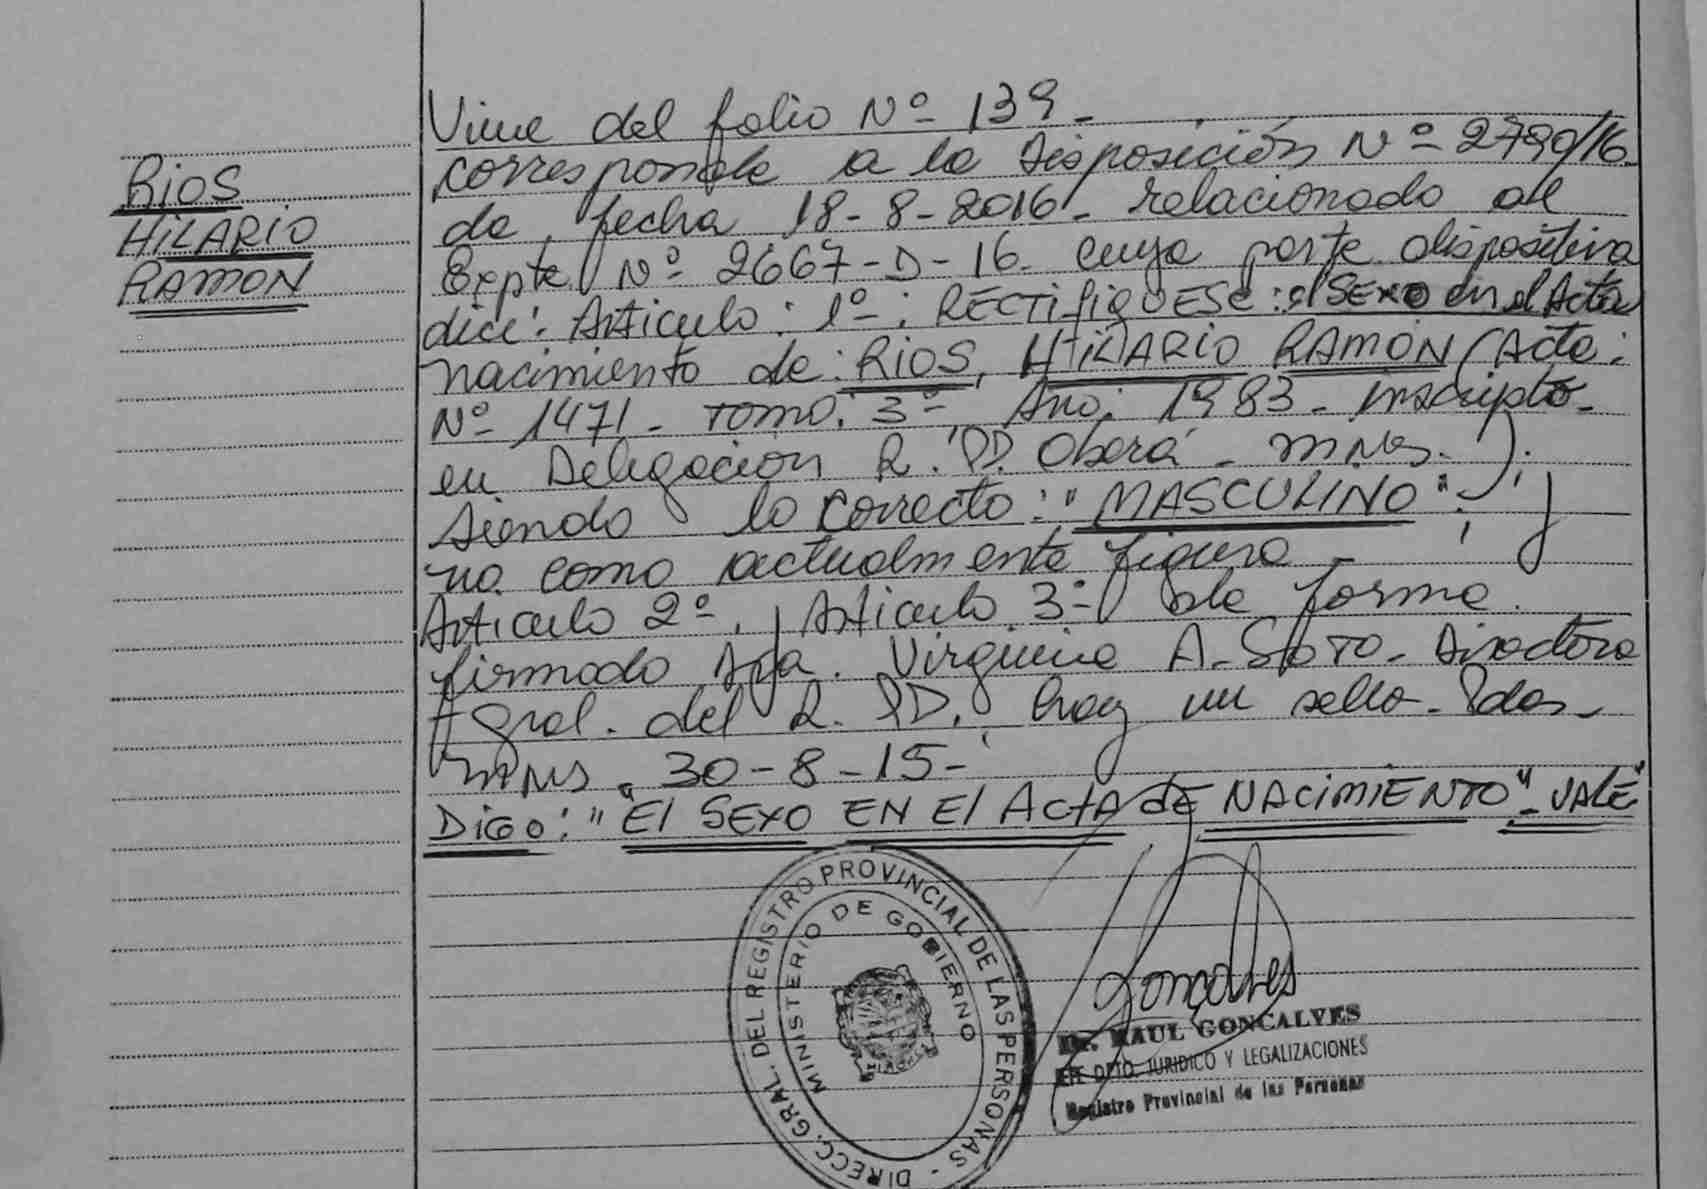 RIOS
HILARIO
RAMON
Viene del folio Nº 139-
corresponde a la Disposición Nº 2790/16
de fecha 18-8-2016- relacionado al
Expte Nº 2667-D-16- cuya parte dispositiva
dice: Articulo: 1º: RECTIFIQUESE: el SEXO en el Acta
nacimiento de: RIOS, HILARIO RAMON (Acta:
Nº 1471- TOMO: 3º- Año: 1983- inscripto-
en Delegación R. PP. Oberá - MNES.).
siendo lo correcto: "MASCULINO"- y
no como actualmente figura-
Articulo 2º, Articulo 3º de forma.
firmado Virginia A- SOTO- Directora
Gral. del R. PP. hay un sello- Pdas-
MNES. 30-8-15-
DIGO: "El SEXO EN El ActA dE NACIMIENTO"- VALE
DIRECC. GRAL. DEL REGISTRO PROVINCIAL DE LAS PERSONAS -
MINISTERIO DE GOBIERNO
Goncalves
Dr. RAUL GONCALVES
JEFE DPTO. JURIDICO Y LEGALIZACIONES
Registro Provincial de las Personas